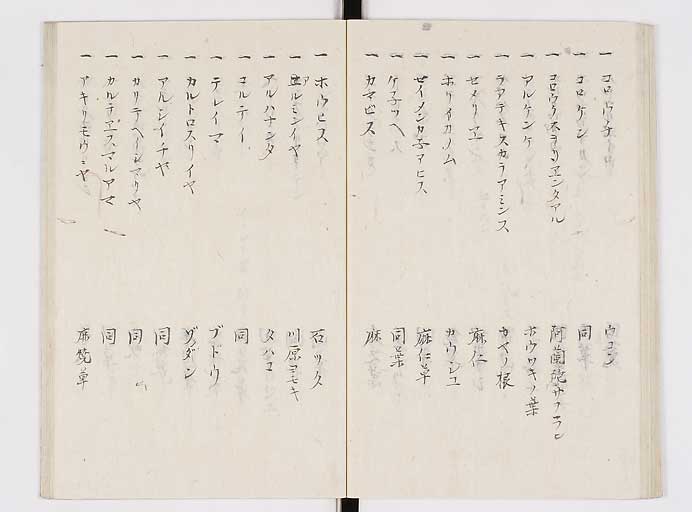 一 コロウ子 ウコン
一 コロケン 同
一 コロウクスヲリヱンタアル 阿蘭陀サフラン
一 アルケンケ ホウツキノ葉
一 ラアテキスカラアミンス カマノ根
一 セメリヱ 麻仁
一 ホリイカノム カウシユ
一 セイメンカ子アヒス 麻仁草
一 ケ子ツヘ 同葉
一 カマビス 麻
一 ホウヒス 石ツク
一 アルミシイヤ 川原ヨモキ
一 アルハナンタ タハコ
一 コルテイ 同
一 テレイマ ブドウ
一 カルトロスリイヤ
一 アルシイチヤ 同
一 カリテヘイシマリヤ 同
一 カルテヱスマルアマ 同
一 アキリモウミヤ 席莞草